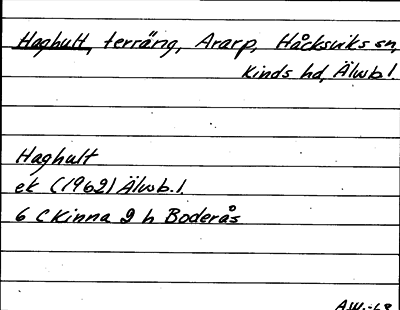 Haghult, terräng, Ararp, Håcksviks sn,
Kinds hd, Älvsb. l.
Haghult
ek (1962) Älvsb. l.
6 C Kinna 2 h Boderås
AW.-68